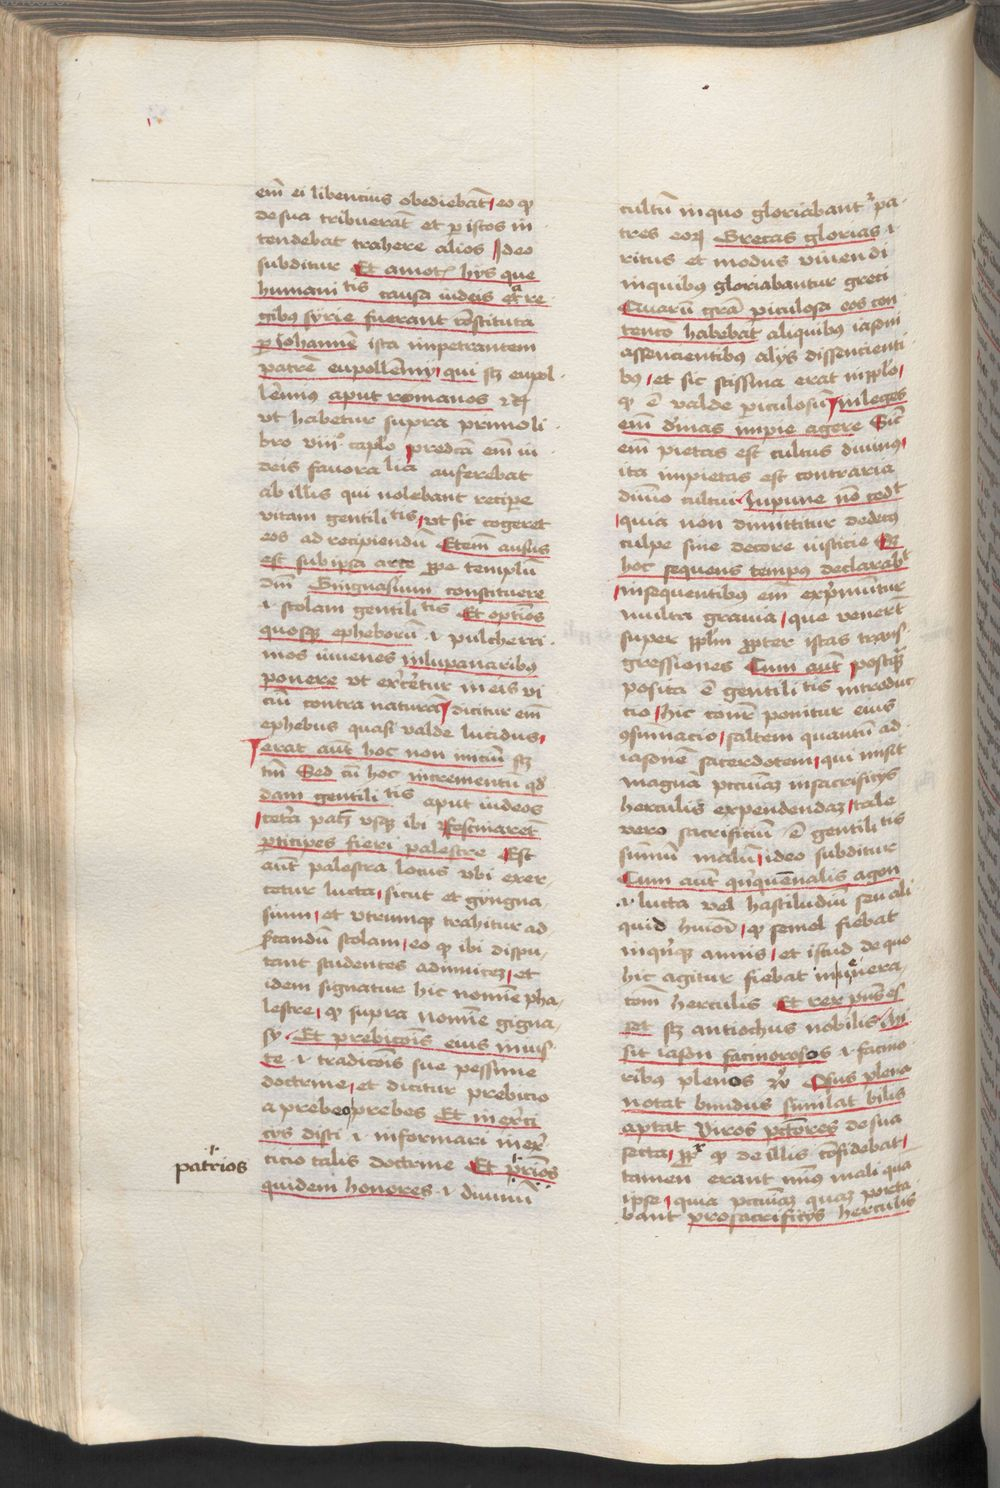 em̄ ei libencius obediebāt eo qꝫ
de sua tribuerāt et ꝑ istos in
tendebat trahere alios Ideo
subditur Et amotꝭ hys que
humani tis causa iudeis et a re
gibꝰ syrie fuerant cōstituta
ꝑ Iohannē ista impetrantem
patrē eupollemy qui sꝫ eupol
lemus aput romanos
vt habetur supra primo li
bro viiiº caplo predcā em̄ iu
deis fauora lia auferebat
ab illis qui nolebant reciꝑe
vitam gentili tis vt sic cogeret
eos ad recipiendū Etem̄ ausus
est sub ipsa arce ꝓpe templū
dm̄ Gingnasium constituere
.i. scolam gentili tis Et optiōs
quosqꝫ epheborū .i. pulcherri
mos iuuenes in lupanaribꝰ
ponere vt exercētur in eis vi
ciū contra naturā dicitur em̄
ephebus quasi valde lucidus
erat aut hoc non iniciū sꝫ
tm̄ Sed cū hoc incrementū qd̄
dam gentili tis aput iudeos
cetera patꝫ vsqꝫ ibi Festinaret
ꝑticipes fieri palestre Est
aūt palestra locus vbi exer
cetur lucta sicut et gyngna
sium et vtrumqꝫ trahitur ad
scandū scolam eo qꝫ ibi dispu
tant studentes adinuicē et
idem signatur hic nomīe pha
lestre qꝫ supra nomīe gigna
sy Et prebicoīs eius inius
te .i. tradicoīs sue pessime
doctrine et dicitur prebicio
a prebeo prebes Et in exerci
cys disci .i. informari in exer
cicio talis doctrine Et pr̄ios
patrios
quidem honores .i. diuinū
cultū in quo gloriabant ꝛ pa
tres eoꝝ Grecas glorias .i.
ritus et modus viuendi
in quibꝰ gloriabantur greci
Quarū grā ꝑiculosa eos con
tentio habebat aliquibꝰ iasoni
assencientibꝰ alys dissencienti
bꝰ et sic scissura erat in pplo
qꝫ ē valde ꝑiculosū In leges
em̄ diuinas impie agere Sicut
em̄ pietas est cultus diuinꝰ
ita impietas est contraria
diuīo cultui Inpune nō cedit
quia non dimittitur dedecꝰ
culpe sine decore iusticie Et
hoc sequens tempꝰ declarabit
in sequentibꝰ em̄ exprimūtur
multa grauia que venerūt
super pplm̄ ꝓpter istas trans
gressiones Cum aūt postqꝫ
posita ē gentili tis introduc
cio hic conꝛ ponitur eius
ꝯsūmacio saltem quantū ad
iasonē sacerdotem qui misit
magnā pecuniā in sacrificys
herculis expendendaꝫ tale
vero sacrificiū ē gentili tis
sūmū malū ideo subditur
Cum aūt quīquēnalis agon
.i. lucta vel hastiludiū seu ali
quid huīoi qꝫ semel fiebat
in quīqꝫ annis et istud de quo
hic agitur fiebat in vera
cōm herculis Et rex pūs es
set sꝫ antiochus nobilis Mi
sit iason facinorosos .i. facino
ribus plenos Usus plena
notat bundus simulat bilis
aptat Viros peccatores de sua
secta ꝓpꝛ qꝫ de illis cōfidebat
tamen erant minꝰ mali qua
ipse quia pecuniaꝫ quaꝫ porta
bant pro sacrificys herculis